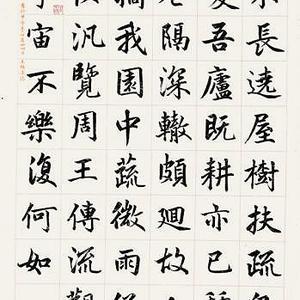 木長遶屋樹扶疏
吾廬既耕亦已
隔深轍頗迴故人
摘我園中蔬微雨從
汎覽周王傳流觀
宙不樂復何如